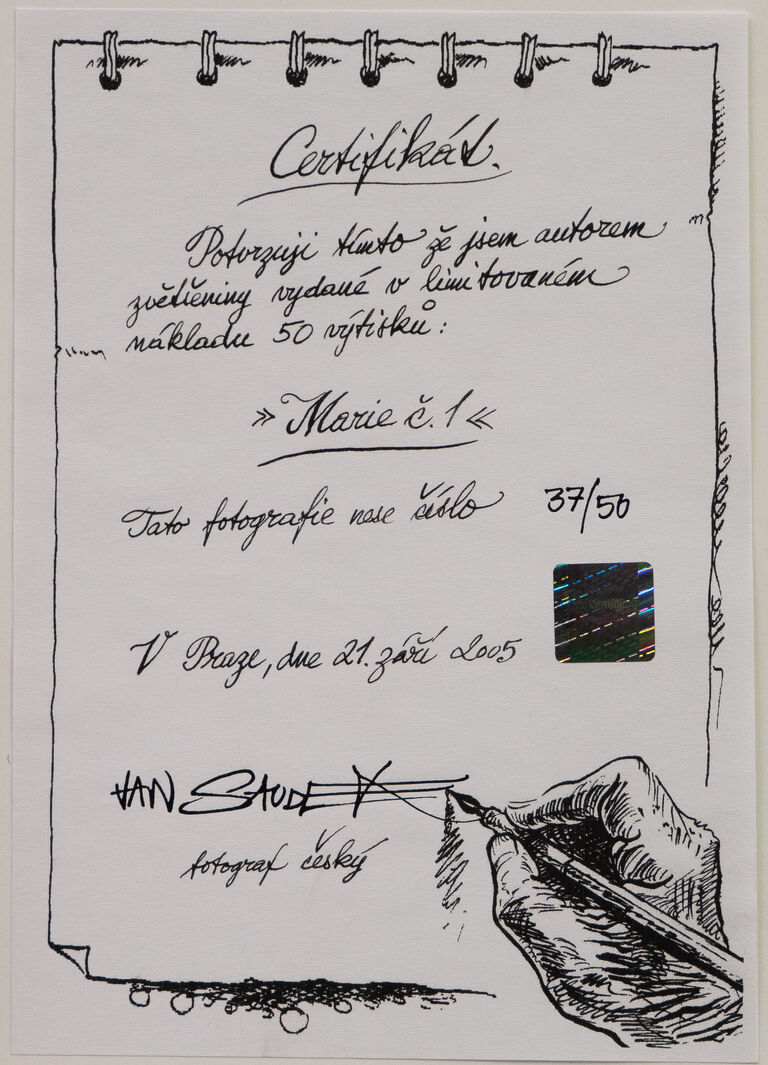 Certifikát.
Potvrzuji tímto že jsem autorem
zvětšeniny vydané v limitovaném
nákladu 50 výtisků:
»Marie č. 1«
Tato fotografie nese číslo 37/50
V Praze, dne 21. září 2005
JAN SAUDEK
fotograf český